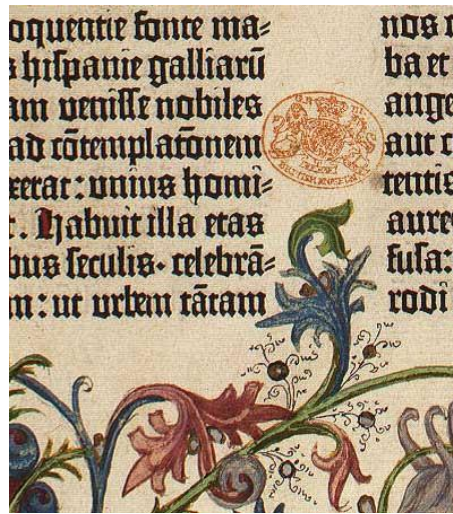 oquentie fonte ma=
hispanie galliarū
am venisse nobiles
ad cōtemplatōnem
xerat: unius homi=
. Habuit illa etas
bus seculis. celebrā=
m: ut urbem tātam
nos
ba et
ange
aut
tentis
aure
fusa:
rodi